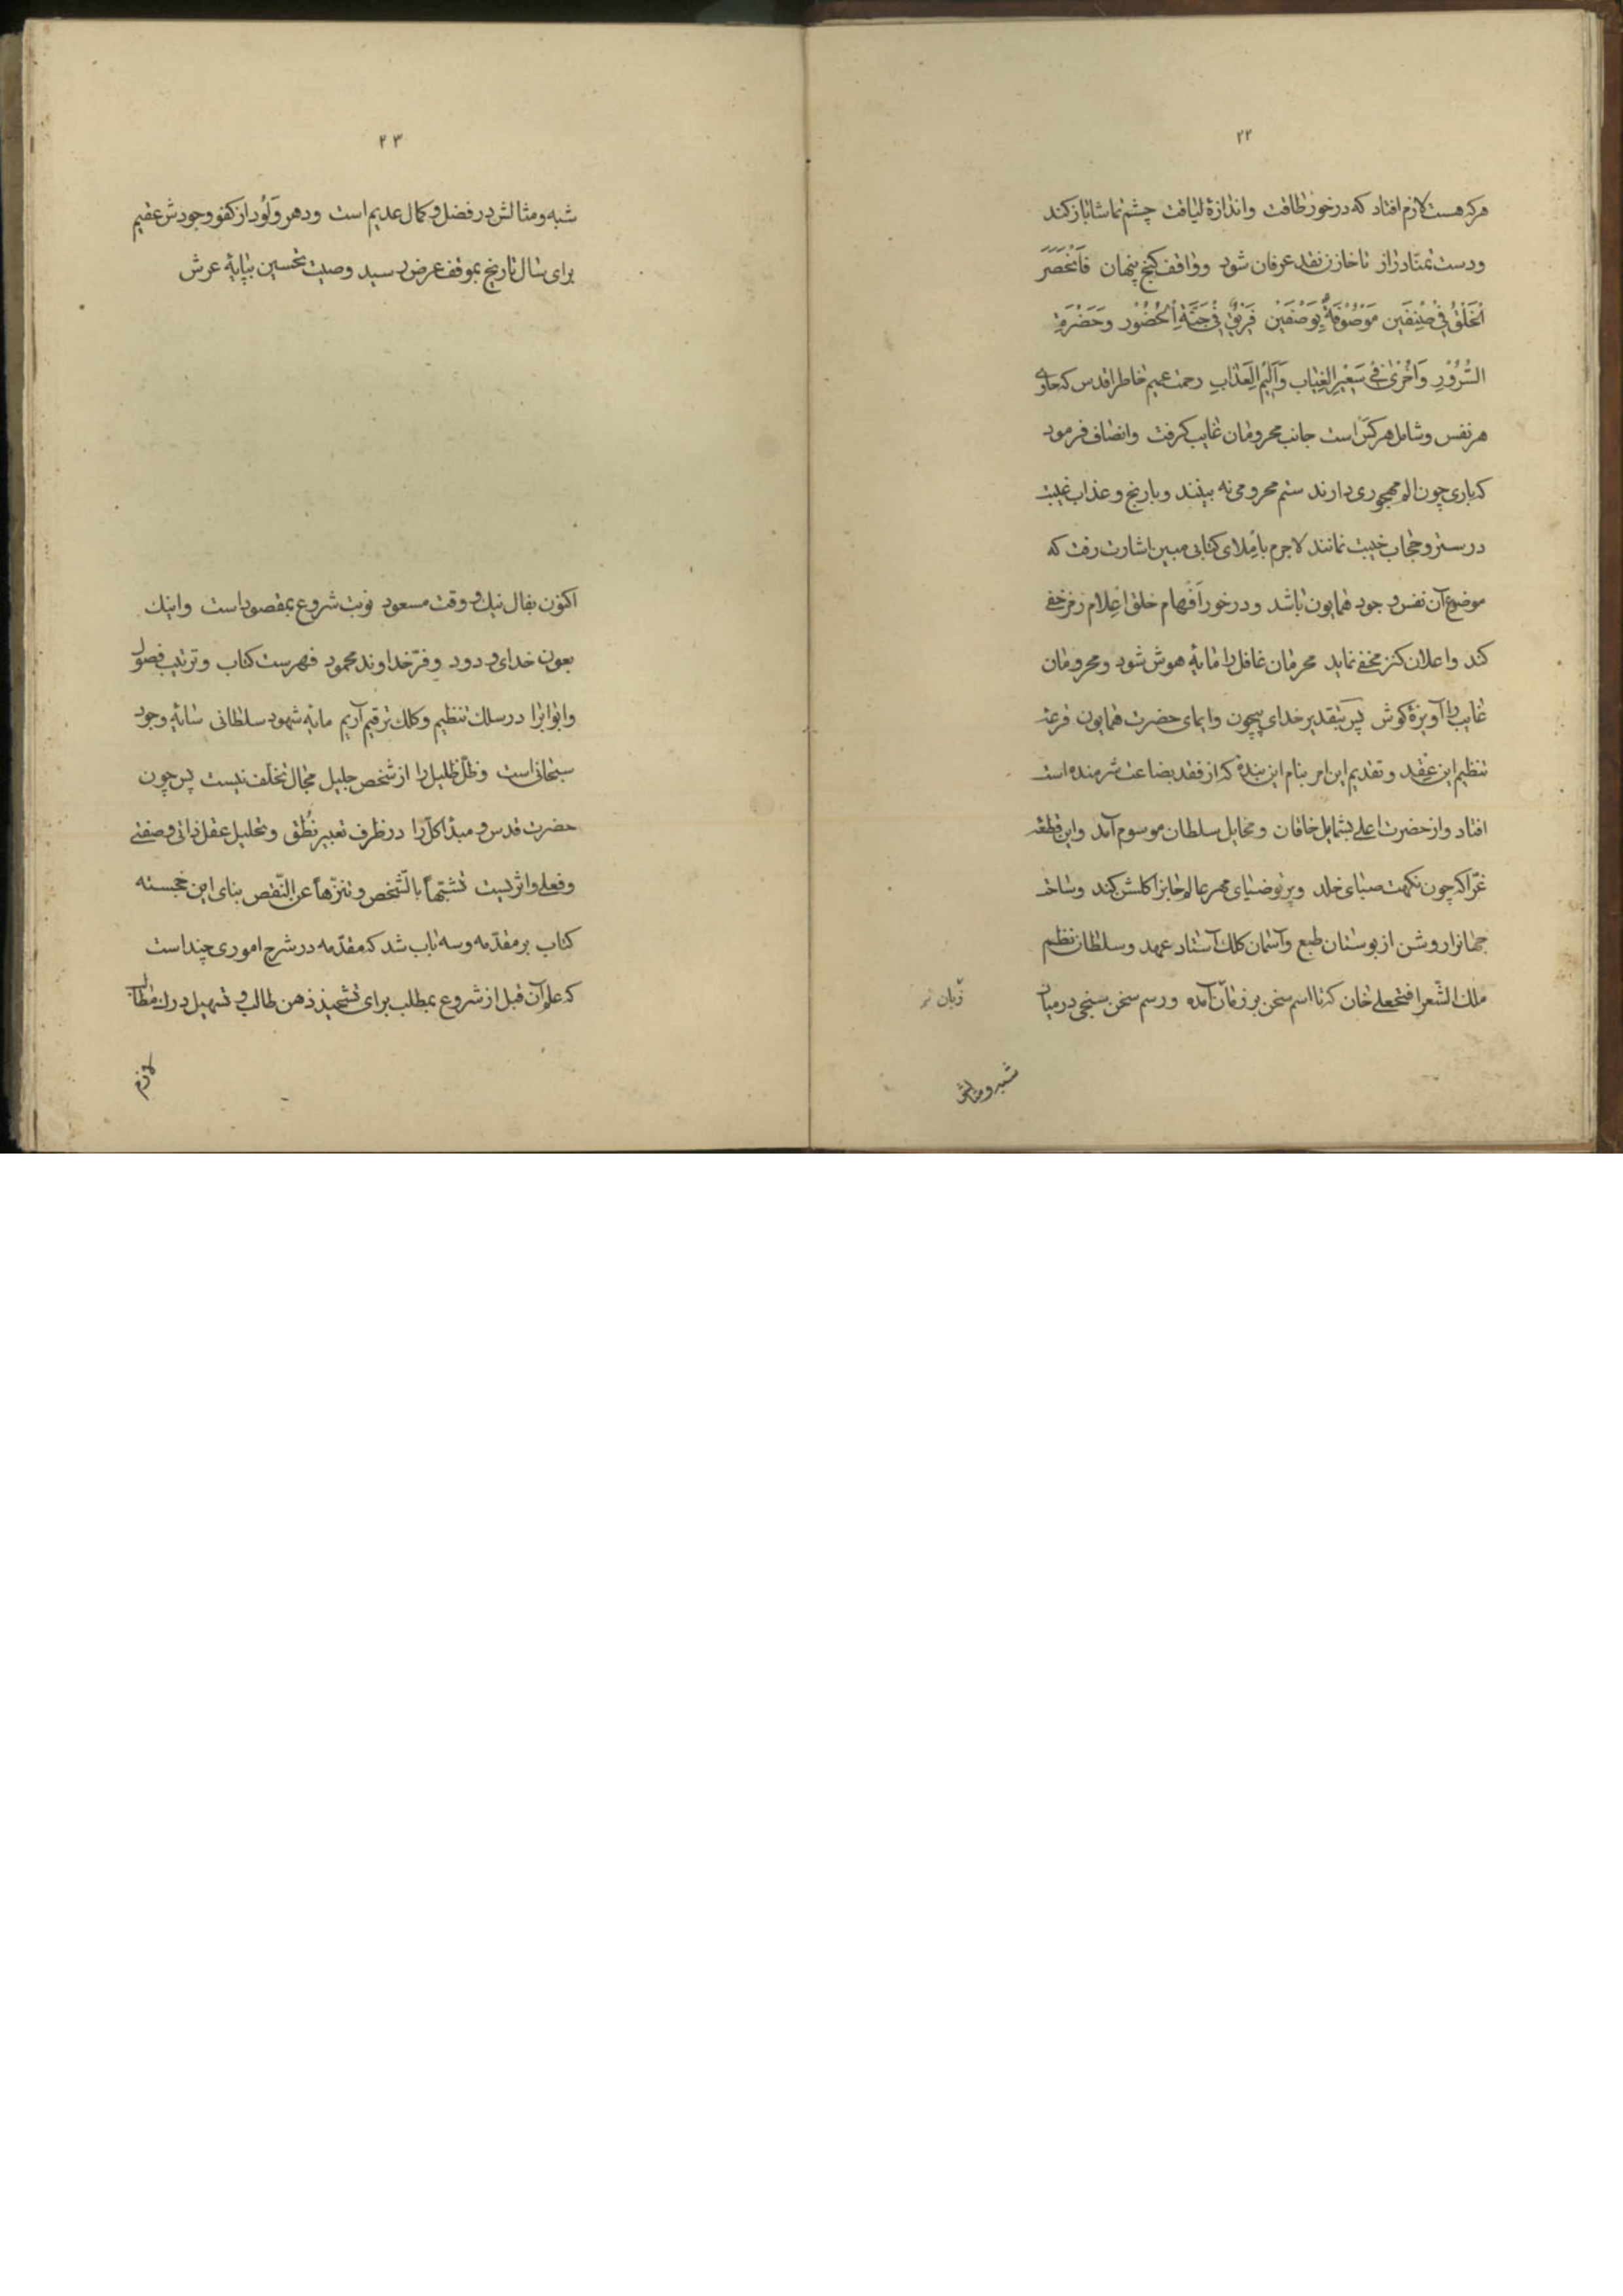 ۲۲
هرکه هست لازم افتاد که درخور طاقت واندازۀ لیاقت چشم تماشا باز کند
ودست تمنّا دراز تا خازن نقد عرفان شود وواقف کنج پنهان فَانْحَصَرَ
الْخَلْقُ فِی صِنْفَیْنِ مَوْصُوْفَةً بِوَصْفَیْنِ فَرِیْقٌ فِیْ جَنَّةِ الْحُضُوْرِ وَحَضْرَةِ
السُّرُوْرِ وَاُخْرٰی فِیْ سَعِیْرِ الْغِیَابِ وَاَلِیْمِ الْعَذَابِ رحمت عمیم خاطر اقدس که حاوی
هر نفس وشامل هر کس است جانب محرومان غایب کرفت وانصاف فرمود
که باری چون الم مهجوری دارند ستم محرومی نه بینند وبا رنج وعذاب غیبت
در ستر وحجاب خیبت نمانند لاجرم باملای کتابی مبین اشارت رفت که
موضوع آن نفس وجود همایون باشد ودرخور اَفهام خلق اِعلام رمز خفی
کند واعلان کنز مخفی نماید محرمان غافل را مایۀ هوش شود ومحرومان
غایب را آویزۀ کوش پس بتقدیر خدای بیچون وایمای حضرت همایون قرعۀ
تنظیم این عِقد وتقدیم این امر بنام این بنده که از فقد بضاعت شرمنده است
افتاد واز حضرت اعلی بشمایل خاقان ومخایل سلطان موسوم آمد واین قطعۀ
غرّا که چون نکهت صبای خلد وپرتو ضیای مهر عالم جانرا کلشن کند وساخۀ
جهانرا روشن از بوستان طبع وآسمان کلک استاد عهد وسلطان نظم
ملک الشّعرا فتحعلی خان که تا اسم سخن بر زبان آمده ورسم سخن سنجی در میان
زبان
شبه ومثالش
۲۳
شبه ومثالش در فضل وکمال عدیم است ودهر وَلُود از کفو وجودش عقیم
برای سال تاریخ بموقف عرض رسید وصیت تحسین بپایۀ عرش
اکنون بفال نیک ووقت مسعود نوبت شروع بمقصود است واینک
بعون خدای ودود وفرّ خداوند محمود فهرست کتاب وترتیب فصول
وابوابرا در سلک تنظیم وکلک ترقیم آریم مایۀ شهود سلطانی سایۀ وجود
سبحانی است وظلّ ظلیل را از شخص جلیل مجال تخلّف نیست پس چون
حضرت قدس ومبدأ کلّ را در ظرف تعبیر نُطق وتحلیل عقل ذاتی وصفتی
وفعلی واثریست تشبّهاً بالشّخص وتنزّهاً عن النّقص بنای این خجسته
کتاب بر مقدّمه وسه باب شد که مقدّمه در شرح اموری چند است
که علم آن قبل از شروع بمطلب برای تشحیذ ذهن طالب وتسهیل درک مطالب
لازم